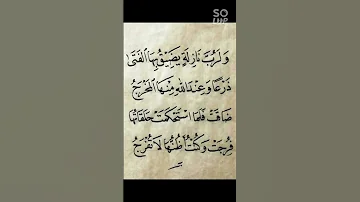 SO
LIVE
وَلَرُبَّ نَازِلَةٍ يَضِيقُ بِهَا الْفَتَى
ذَرْعًا وَعِنْدَ اللهِ مِنْهَا الْمَخْرَجُ
ضَاقَتْ فَلَمَّا اسْتَحْكَمَتْ حَلَقَاتُهَا
فُرِجَتْ وَكُنْتُ أَظُنُّهَا لَا تُفْرَجُ